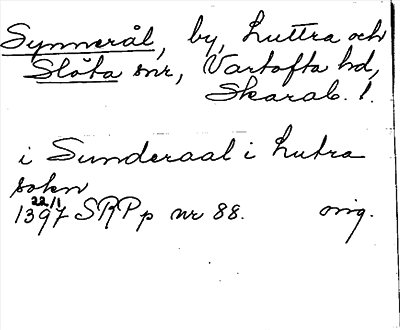 Synnerål, by, Luttra och
Slöta snr, Vartofta hd,
Skarab. l.
i Sunderaal i Lutra
sokn
1397 22/1 SRPp nr 88. orig.